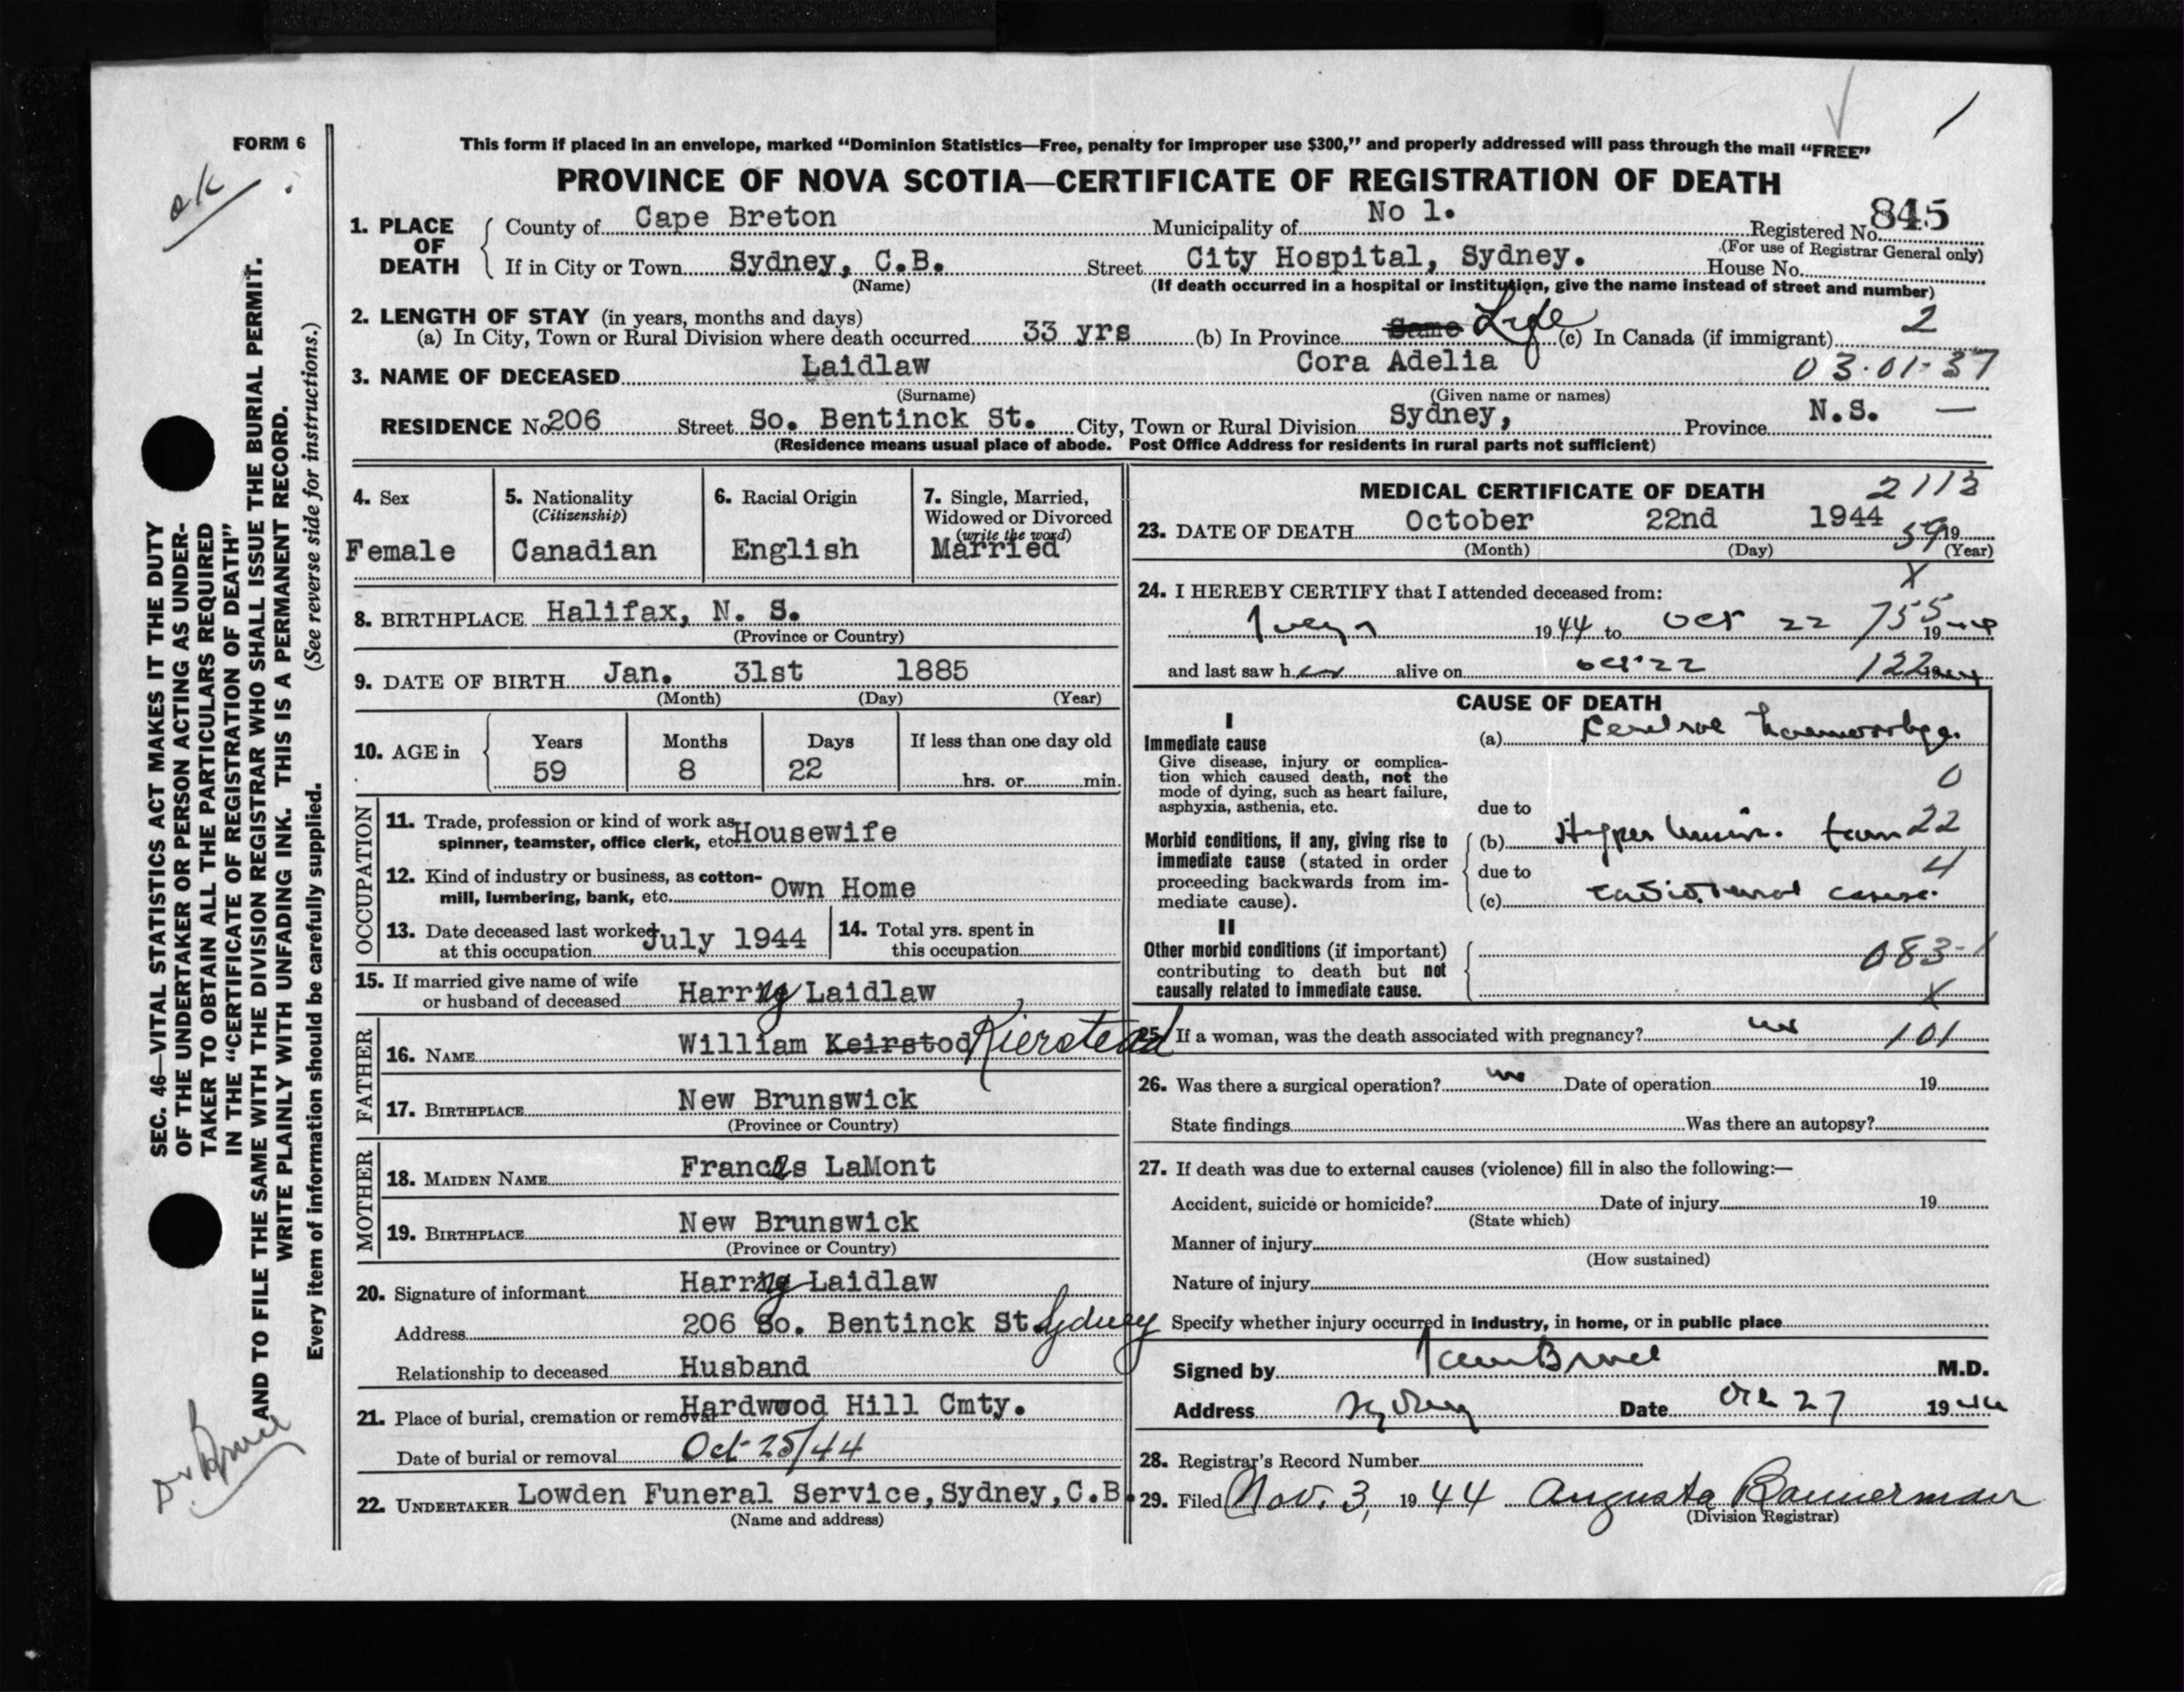 FORM 6
This form if placed in an envelope, marked “Dominion Statistics—Free, penalty for improper use $300,” and properly addressed will pass through the mail “FREE”
ok
PROVINCE OF NOVA SCOTIA—CERTIFICATE OF REGISTRATION OF DEATH
1. PLACE OF DEATH
County of Cape Breton Municipality of No 1. Registered No. 845
(For use of Registrar General only)
If in City or Town Sydney, C.B. Street City Hospital, Sydney. House No.
(Name) (If death occurred in a hospital or institution, give the name instead of street and number)
2. LENGTH OF STAY (in years, months and days)
(a) In City, Town or Rural Division where death occurred 33 yrs (b) In Province Same Life (c) In Canada (if immigrant) 2
3. NAME OF DECEASED Laidlaw Cora Adelia 03.01-37
(Surname) (Given name or names)
RESIDENCE No 206 Street So. Bentinck St. City, Town or Rural Division Sydney, Province N.S. —
(Residence means usual place of abode. Post Office Address for residents in rural parts not sufficient)
4. Sex
Female
5. Nationality
(Citizenship)
Canadian
6. Racial Origin
English
7. Single, Married,
Widowed or Divorced
(write the word)
Married
8. BIRTHPLACE Halifax, N. S.
(Province or Country)
9. DATE OF BIRTH Jan. 31st 1885
(Month) (Day) (Year)
10. AGE in
Years Months Days If less than one day old
59 8 22 hrs. or min.
OCCUPATION
11. Trade, profession or kind of work as
spinner, teamster, office clerk, etc. Housewife
12. Kind of industry or business, as cotton-
mill, lumbering, bank, etc. Own Home
13. Date deceased last worked
at this occupation July 1944
14. Total yrs. spent in
this occupation
15. If married give name of wife
or husband of deceased Harry Laidlaw
FATHER
16. NAME William Keirstod Kierstead
17. BIRTHPLACE New Brunswick
(Province or Country)
MOTHER
18. MAIDEN NAME Frances LaMont
19. BIRTHPLACE New Brunswick
(Province or Country)
20. Signature of informant Harry Laidlaw
Address 206 So. Bentinck St. Sydney
Relationship to deceased Husband
21. Place of burial, cremation or removal Hardwood Hill Cmty.
Date of burial or removal Oct 25/44
22. UNDERTAKER Lowden Funeral Service, Sydney, C.B.
(Name and address)
MEDICAL CERTIFICATE OF DEATH 2113
23. DATE OF DEATH October 22nd 1944 59 19
(Month) (Day) (Year)
X
24. I HEREBY CERTIFY that I attended deceased from:
1944 to Oct 22 755 19
and last saw h alive on Oct 22 122
CAUSE OF DEATH
I
Immediate cause
Give disease, injury or complica-
tion which caused death, not the
mode of dying, such as heart failure,
asphyxia, asthenia, etc.
(a) haemorrhage.
0
due to
Morbid conditions, if any, giving rise to
immediate cause (stated in order
proceeding backwards from im-
mediate cause).
(b) 22
due to 4
(c)
II
Other morbid conditions (if important)
contributing to death but not
causally related to immediate cause.
083-1
X
25. If a woman, was the death associated with pregnancy? no 101
26. Was there a surgical operation? no Date of operation 19
State findings Was there an autopsy?
27. If death was due to external causes (violence) fill in also the following:—
Accident, suicide or homicide? Date of injury 19
(State which)
Manner of injury
(How sustained)
Nature of injury
Specify whether injury occurred in industry, in home, or in public place
Signed by Bruce M.D.
Address Sydney Date Oct 27 1944
28. Registrar's Record Number
29. Filed Nov. 3, 1944 Augusta Bannerman
(Division Registrar)
SEC. 46—VITAL STATISTICS ACT MAKES IT THE DUTY
OF THE UNDERTAKER OR PERSON ACTING AS UNDER-
TAKER TO OBTAIN ALL THE PARTICULARS REQUIRED
IN THE “CERTIFICATE OF REGISTRATION OF DEATH”
AND TO FILE THE SAME WITH THE DIVISION REGISTRAR WHO SHALL ISSUE THE BURIAL PERMIT.
WRITE PLAINLY WITH UNFADING INK. THIS IS A PERMANENT RECORD.
(See reverse side for instructions.)
Every item of information should be carefully supplied.
Dr Bruce